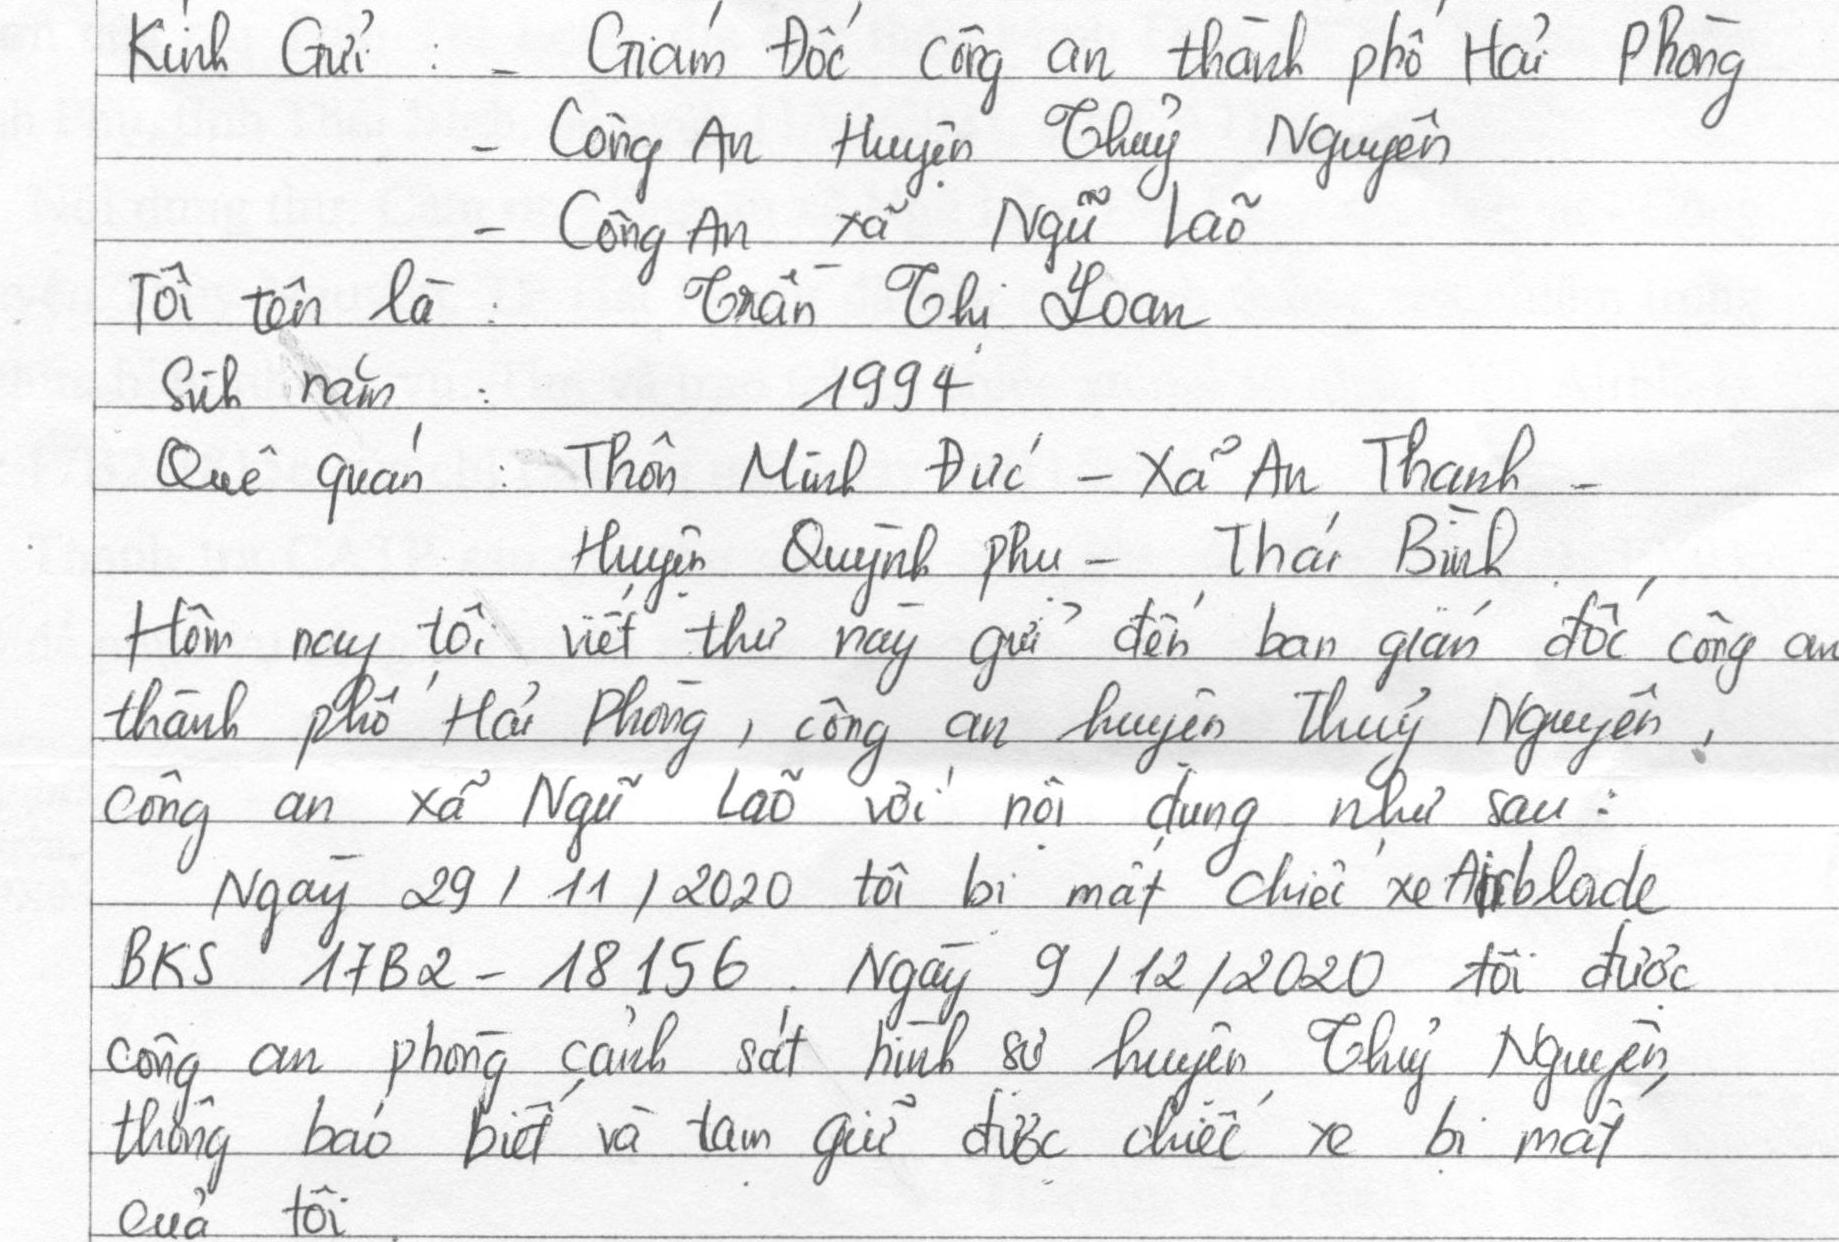 Kính Gửi : - Giám Đốc công an thành phố Hải Phòng
- Công An Huyện Thuỷ Nguyên
- Công An xã Ngũ Lão
Tôi tên là : Trần Thị Loan
Sinh năm : 1994
Quê quán : Thôn Minh Đức - Xã An Thanh -
Huyện Quỳnh phụ - Thái Bình
Hôm nay tôi viết thư này gửi đến ban gián đốc công an
thành phố Hải Phòng, công an huyện Thuỷ Nguyên,
công an xã Ngũ Lão với nội dung như sau :
Ngày 29/11/2020 tôi bị mất chiếc xe Airblade
BKS 17B2 - 18156. Ngày 9/12/2020 tôi được
công an phòng cảnh sát hình sự huyện Thuỷ Nguyên,
thông báo biết và tạm giữ được chiếc xe bị mất
của tôi.